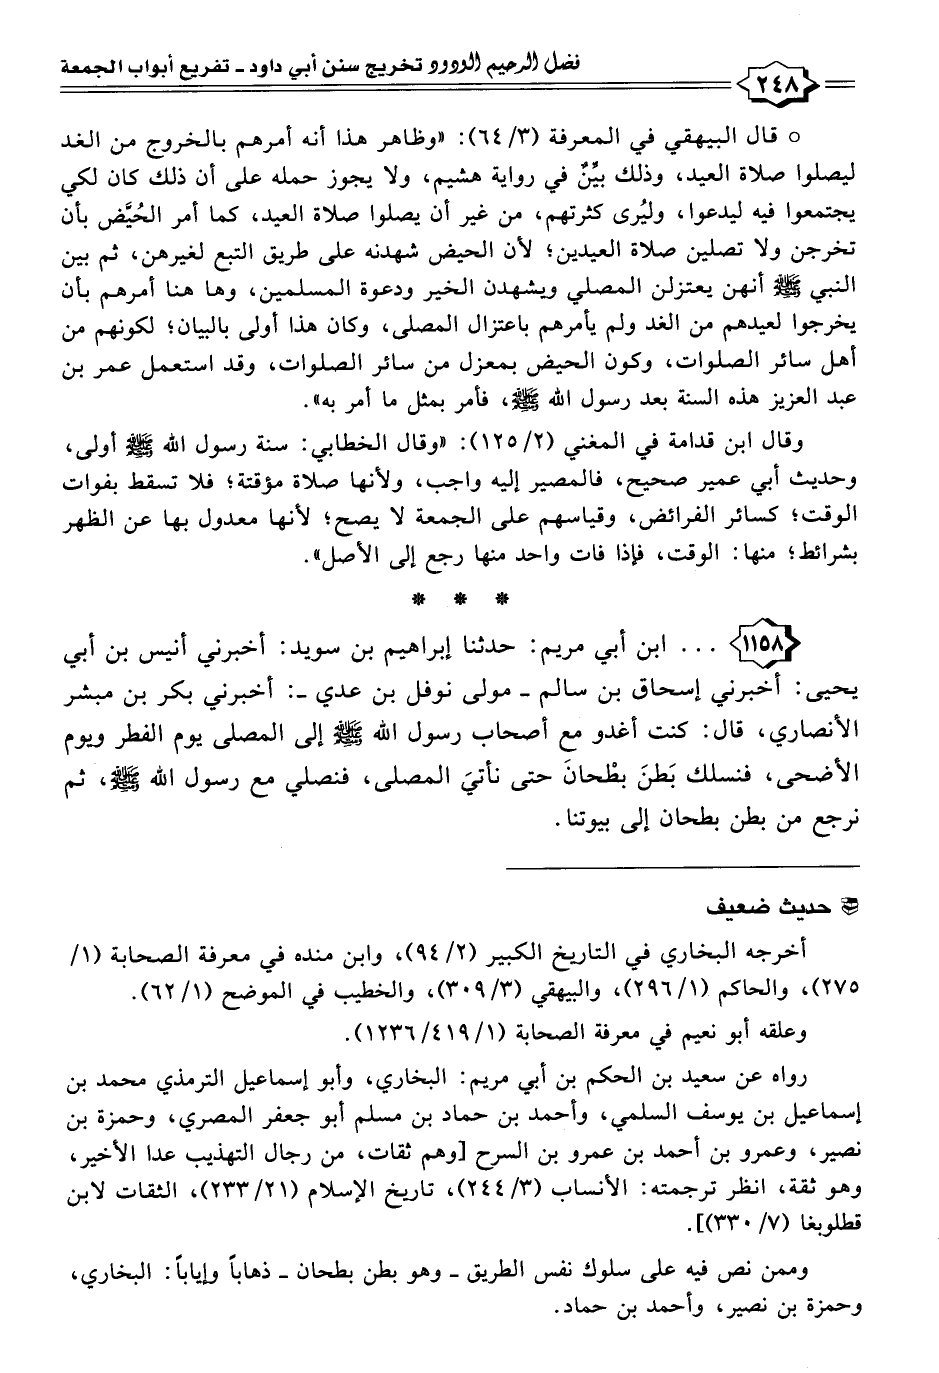 ٢٤٨ فضل الرحيم الودود تخريج سنن أبي داود ـ تفريع أبواب الجمعة
○ قال البيهقي في المعرفة (٣/ ٦٤): «وظاهر هذا أنه أمرهم بالخروج من الغد
ليصلوا صلاة العيد، وذلك بيِّنٌ في رواية هشيم، ولا يجوز حمله على أن ذلك كان لكي
يجتمعوا فيه ليدعوا، وليُرى كثرتهم، من غير أن يصلوا صلاة العيد، كما أمر الحُيَّض بأن
تخرجن ولا تصلين صلاة العيدين؛ لأن الحيض شهدنه على طريق التبع لغيرهن، ثم بين
النبي ﷺ أنهن يعتزلن المصلي ويشهدن الخير ودعوة المسلمين، وها هنا أمرهم بأن
يخرجوا لعيدهم من الغد ولم يأمرهم باعتزال المصلى، وكان هذا أولى بالبيان؛ لكونهم من
أهل سائر الصلوات، وكون الحيض بمعزل من سائر الصلوات، وقد استعمل عمر بن
عبد العزيز هذه السنة بعد رسول الله ﷺ، فأمر بمثل ما أمر به».
وقال ابن قدامة في المغني (٢/ ١٢٥): «وقال الخطابي: سنة رسول الله ﷺ أولى،
وحديث أبي عمير صحيح، فالمصير إليه واجب، ولأنها صلاة مؤقتة؛ فلا تسقط بفوات
الوقت؛ كسائر الفرائض، وقياسهم على الجمعة لا يصح؛ لأنها معدول بها عن الظهر
بشرائط؛ منها: الوقت، فإذا فات واحد منها رجع إلى الأصل».
* * *
١١٥٨ ... ابن أبي مريم: حدثنا إبراهيم بن سويد: أخبرني أنيس بن أبي
يحيى: أخبرني إسحاق بن سالم ـ مولى نوفل بن عدي ـ: أخبرني بكر بن مبشر
الأنصاري، قال: كنت أغدو مع أصحاب رسول الله ﷺ إلى المصلى يوم الفطر ويوم
الأضحى، فنسلك بَطنَ بطْحانَ حتى نأتيَ المصلى، فنصلي مع رسول الله ﷺ، ثم
نرجع من بطن بطحان إلى بيوتنا.
حديث ضعيف
أخرجه البخاري في التاريخ الكبير (٢/ ٩٤)، وابن منده في معرفة الصحابة (١/
٢٧٥)، والحاكم (١/ ٢٩٦)، والبيهقي (٣/ ٣٠٩)، والخطيب في الموضح (١/ ٦٢).
وعلقه أبو نعيم في معرفة الصحابة (١/ ٤١٩/ ١٢٣٦).
رواه عن سعيد بن الحكم بن أبي مريم: البخاري، وأبو إسماعيل الترمذي محمد بن
إسماعيل بن يوسف السلمي، وأحمد بن حماد بن مسلم أبو جعفر المصري، وحمزة بن
نصير، وعمرو بن أحمد بن عمرو بن السرح [وهم ثقات، من رجال التهذيب عدا الأخير،
وهو ثقة، انظر ترجمته: الأنساب (٣/ ٢٤٤)، تاريخ الإسلام (٢١/ ٢٣٣)، الثقات لابن
قطلوبغا (٧/ ٣٣٠)].
وممن نص فيه على سلوك نفس الطريق ـ وهو بطن بطحان ـ ذهاباً وإياباً: البخاري،
وحمزة بن نصير، وأحمد بن حماد.